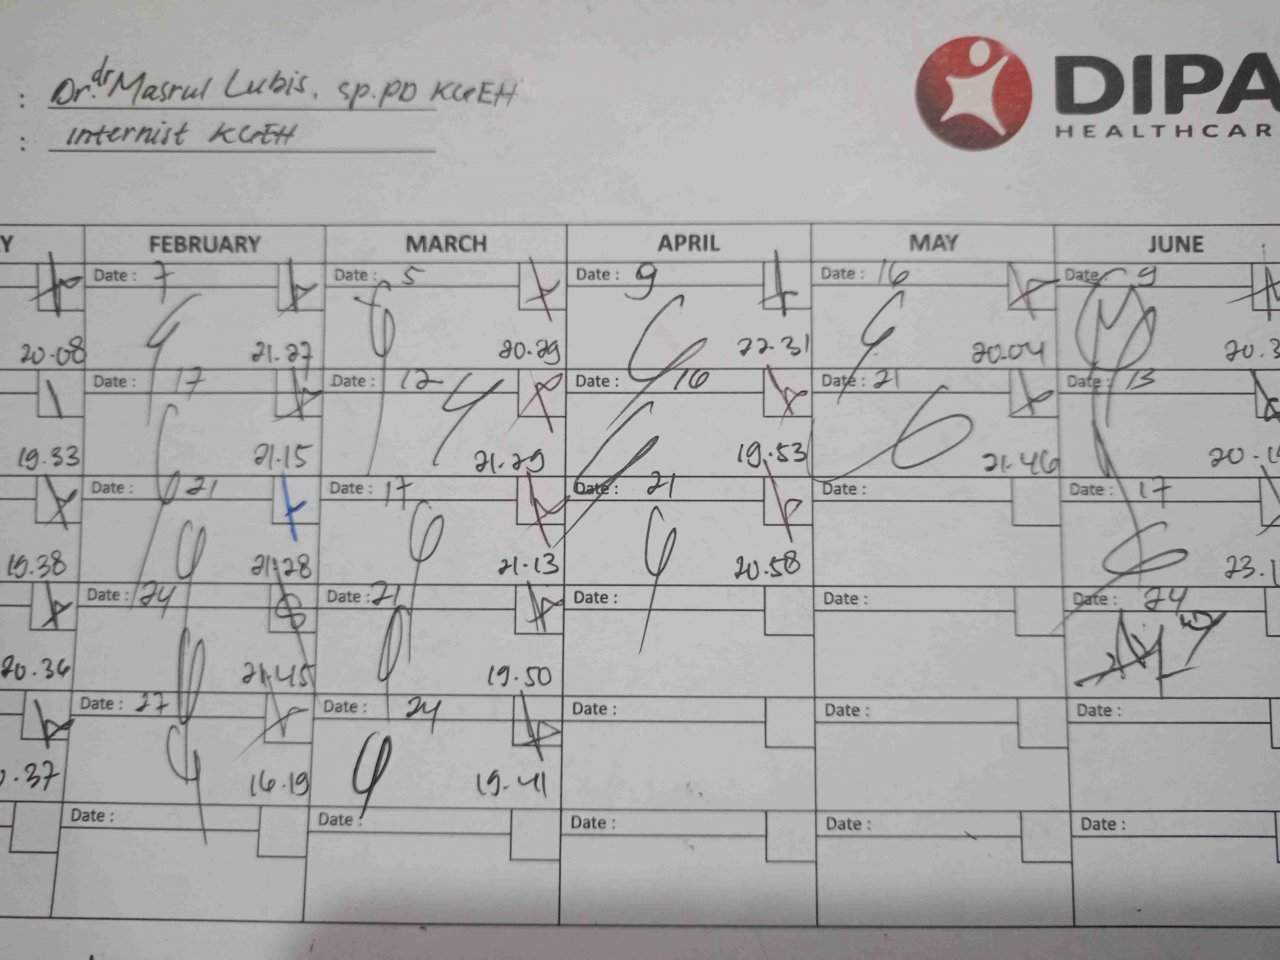 : Dr. dr Masrul Lubis, Sp.PD KGEH
: Internist KGEH
DIPA
HEALTHCAR
Y FEBRUARY MARCH APRIL MAY JUNE
Date : 7 Date : 5 Date : 9 Date : 16 Date : 9
20.08 21.27 20.29 22.31 20.04 20.3
Date : 17 Date : 12 Date : 16 Date : 21 Date : 13
19.33 21.15 21.29 19.53 21.46 20.1
Date : 21 Date : 17 Date : 21 Date : Date : 17
19.38 21.28 21.13 20.58 23.1
Date : 24 Date : 21 Date : Date : Date : 24
20.36 21.45 19.50
Date : 27 Date : 24 Date : Date : Date :
.37 16.19 19.41
Date : Date : Date : Date : Date :